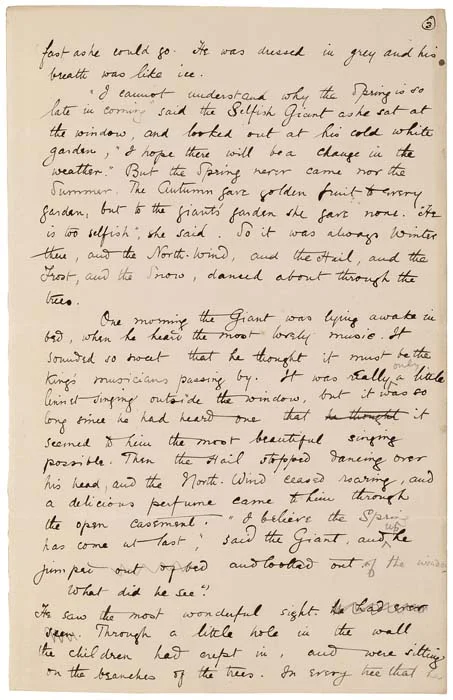 5
fast as he could go. He was dressed in grey and his
breath was like ice.
"I cannot understand why the Spring is so
late in coming" said the Selfish Giant as he sat at
the window, and looked out at his cold white
garden, "I hope there will be a change in the
weather." But the Spring never came nor the
Summer. The Autumn gave golden fruit to every
garden, but to the giants' garden she gave none. "He
is too selfish", she said. So it was always Winter
there, and the North-Wind, and the Hail, and the
Frost, and the Snow, danced about through the
trees.
One morning the Giant was lying awake in
bed, when he heard the most lovely music. It
sounded so sweet that he thought it must be the
King's musicians passing by. It was really only a little
linnet singing outside the window, but it was so
long since he had heard one that he thought it
seemed to him the most beautiful singing
possible. Then the Hail stopped dancing over
his head, and the North-Wind ceased roaring, and
a delicious perfume came to him through
the open casement. "I believe the Spring
has come at last" said the Giant, and he
jumped up out of bed and looked out of the window
What did he see?
He saw the most wonderful sight. he had ever
seen. Through a little hole in the wall
the children had crept in, and were sitting
on the branches of the trees. In every tree that he